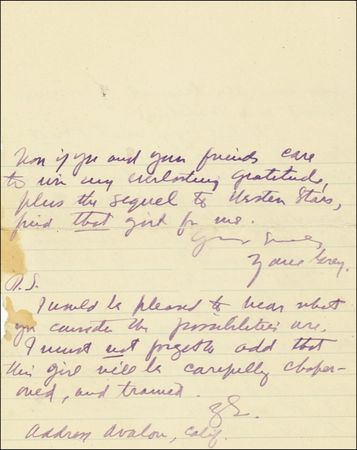 Now if you and your friends care
to win my everlasting gratitude,
plus the sequel to Western Stars,
find that girl for me.
Yours Sincerely,
Zane Grey.
P.S.
I would be pleased to hear what
you consider the possibilities are.
I must not forget to add that
this girl will be carefully chaper-
oned, and trained.
Z.G.
Address Avalon, Calif.